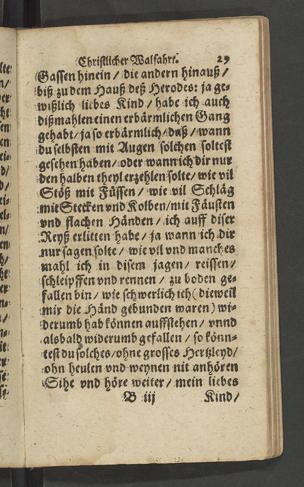 Christlicher Walfahrt. 29
Gassen hinein / die andern hinauß /
biß zu dem Hauß deß Herodes: ja ge-
wißlich liebes Kind / habe ich auch
dißmahlen einen erbärmlichen Gang
gehabt / ja so erbärmlich / daß / wann
du selbsten mit Augen solchen soltest
gesehen haben / oder wann ich dir nur
den halben theyl erzehlen solte / wie vil
Stöß mit Füssen / wie vil Schläg
mit Stecken vnd Kolben / mit Fäusten
vnd flachen Händen / ich auff diser
Reyß erlitten habe / ja wann ich dir
nur sagen solte / wie vil vnd manches
mahl ich in disem jagen / reissen /
schleipffen vnd rennen / zu boden ge-
fallen bin / wie schwerlich ich (dieweil
mir die Händ gebunden waren) wi-
derumb hab können auffstehen / vnnd
alsbald widerumb gefallen / so könn-
test du solches / ohne grosses Hertzleyd /
ohn heulen vnd weynen nit anhören
Sihe vnd höre weiter / mein liebes
B iij Kind /